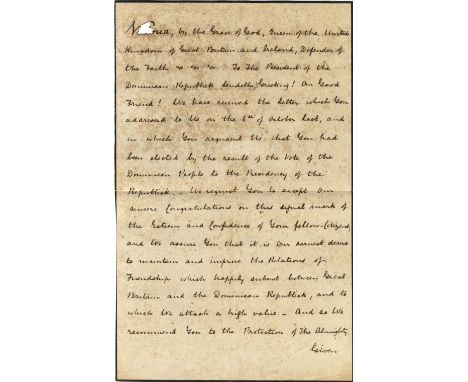 Victoria, by the Grace of God, Queen of the United
Kingdom of Great Britain and Ireland, Defender of
the Faith &c &c &c. To The President of the
Dominican Republick Sendeth Greeting! Our Good
Friend! We have received the letter which You
addressed to Us on the 6th of October last, and
in which You acquaint Us that You had
been elected by the result of the Vote of the
Dominican People to the Presidency of the
Republick. - We request You to accept Our
sincere Congratulations on this signal mark of
the Esteem and Confidence of Your fellow-Citizens,
and We assure You that it is Our earnest desire
to maintain and improve the Relations of
Friendship which happily subsist between Great
Britain and the Dominican Republick, and to
which We attach a high value - And so We
recommend You to the Protection of The Almighty.
Given